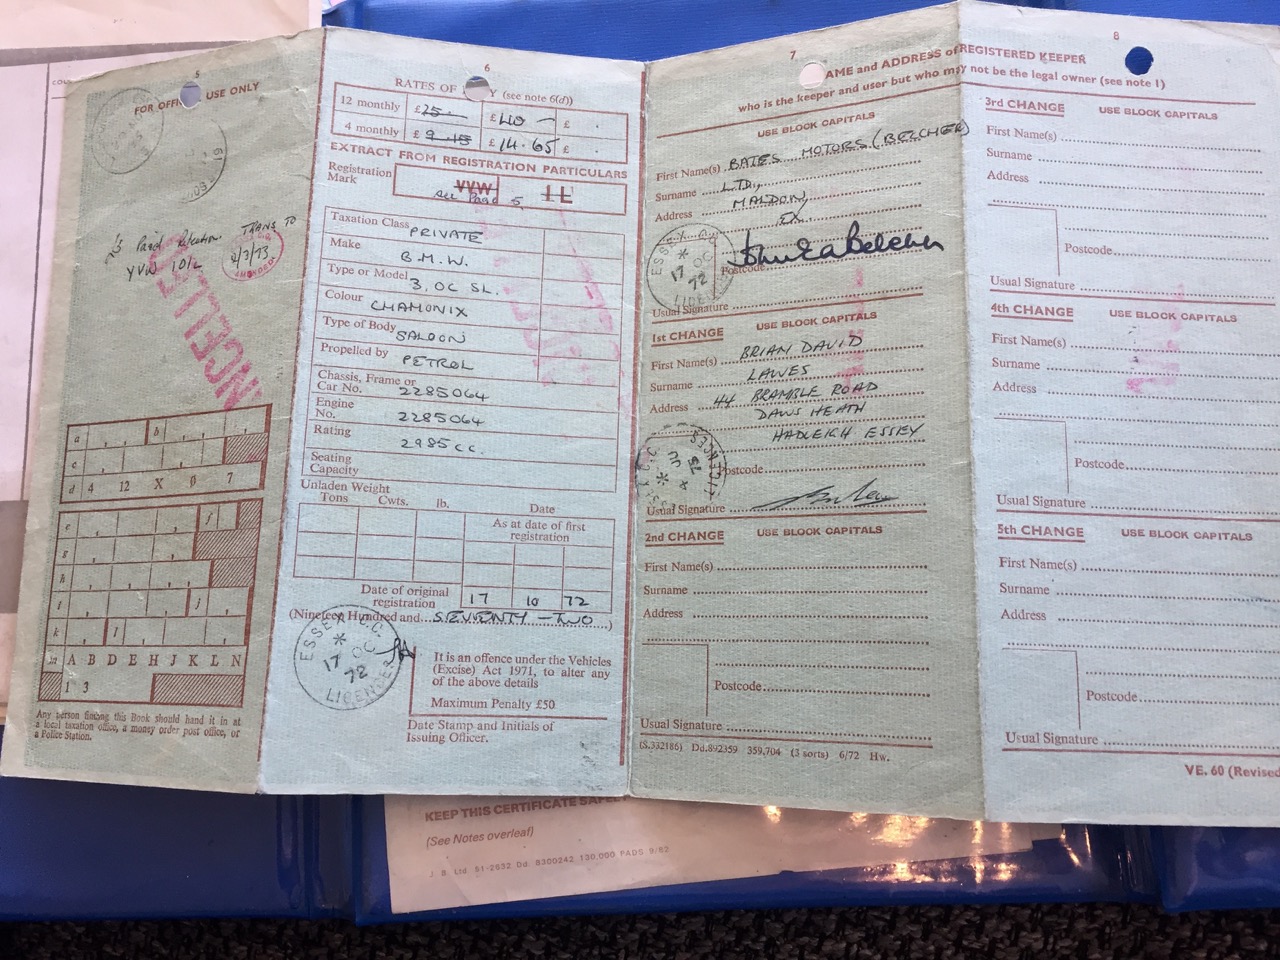 5
FOR OFFI USE ONLY
Paid Retention TRANS TO
YVW 10/L 2/3/73
a b
c
d 4 12 X Ø 7
e f
g
h
i j
k l
m A B D E H J K L N
1 3
Any person finding this Book should hand it in at
a local taxation office, a money order post office, or
a Police Station.
6
RATES OF Y (see note 6(d))
12 monthly £25 £40 - £ .
4 monthly £9.15 £14.65 £ .
EXTRACT FROM REGISTRATION PARTICULARS
Registration
Mark
VVW 1L
See Page 5
Taxation Class PRIVATE
Make B.M.W.
Type or Model 3.0C SL.
Colour CHAMONIX
Type of Body SALOON
Propelled by PETROL
Chassis, Frame or
Car No. 2285064
Engine
No. 2285064
Rating 2985 cc.
Seating
Capacity
Unladen Weight
Tons Cwts. lb. Date
As at date of first
registration
Date of original
registration 17 10 72
(Nineteen Hundred and SEVENTY - TWO )
ESSEX C.C.
17 OC
72
LICENCES
It is an offence under the Vehicles
(Excise) Act 1971, to alter any
of the above details
Maximum Penalty £50
Date Stamp and Initials of
Issuing Officer.
7
AME and ADDRESS of REGISTERED KEEPER
who is the keeper and user but who may not be the legal owner (see note 1)
USE BLOCK CAPITALS
First Name(s) BATES MOTORS (BELCHER)
Surname LTD.,
Address MALDON,
EX.
Postcode
Usual Signature
17 OC
72
1st CHANGE USE BLOCK CAPITALS
First Name(s) BRIAN DAVID
Surname LAWES
Address 44 BRAMBLE ROAD
DAWS HEATH
HADLEIGH ESSEX
Postcode
Usual Signature
4 JU
73
2nd CHANGE USE BLOCK CAPITALS
First Name(s)
Surname
Address
Postcode
Usual Signature
(S.332186) Dd.892359 359,704 (3 sorts) 6/72 Hw.
8
3rd CHANGE USE BLOCK CAPITALS
First Name(s)
Surname
Address
Postcode
Usual Signature
4th CHANGE USE BLOCK CAPITALS
First Name(s)
Surname
Address
Postcode
Usual Signature
5th CHANGE USE BLOCK CAPITALS
First Name(s)
Surname
Address
Postcode
Usual Signature
VE. 60 (Revised
KEEP THIS CERTIFICATE SAFEL
(See Notes overleaf)
J B Ltd 51-2032 Dd 8300242 130,000 PADS 9/82